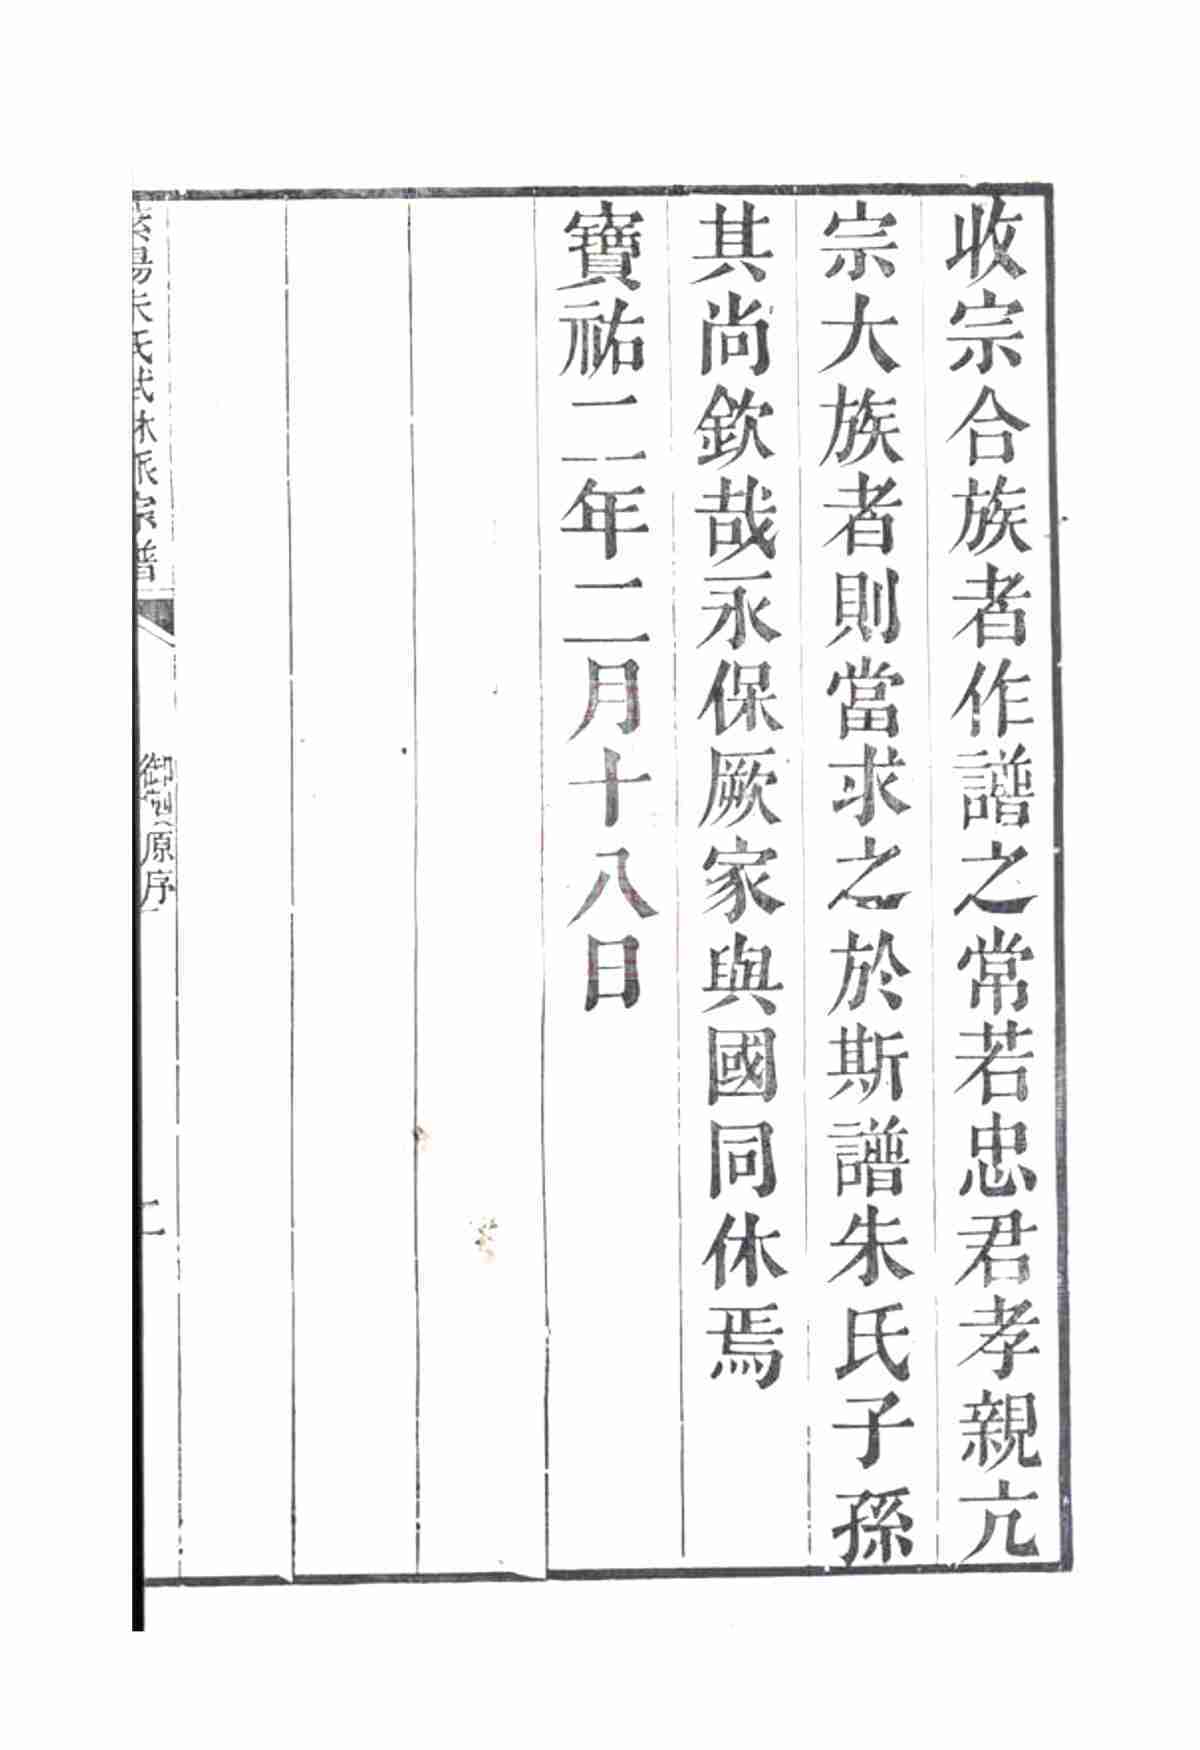 收宗合族者作譜之常若忠君孝親亢
宗大族者則當求之於斯譜朱氏子孫
其尚欽哉永保厥家與國同休焉
寶祐二年二月十八日
紫陽朱氏武林派宗譜
御製原序
二